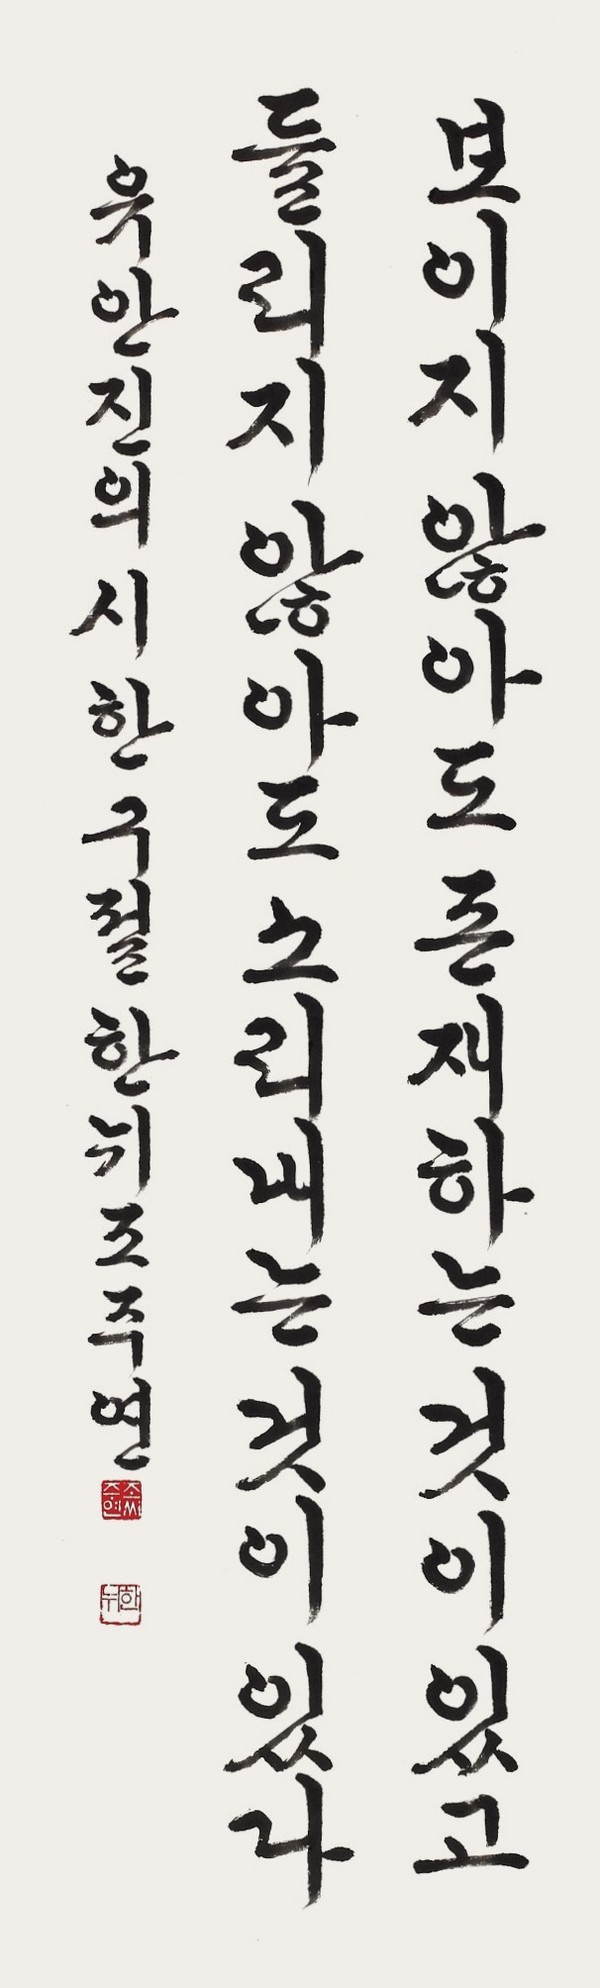 보이지 않아도 존재하는 것이 있고
들리지 않아도 소리내는 것이 있다
유안진의 시 한 구절 한뉘 조주연
조씨주연
한뉘